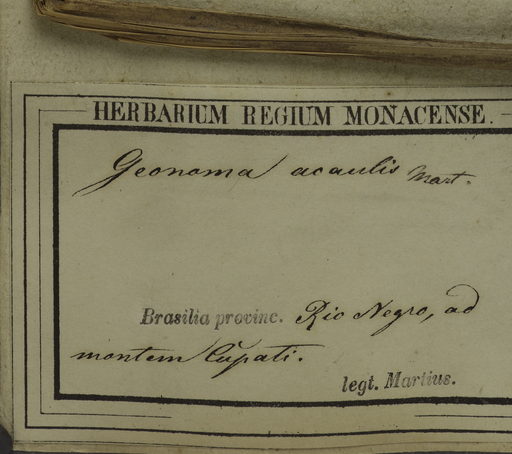 HERBARIUM REGIUM MONACENSE.
Geonoma acaulis Mart.
Brasilia provinc. Rio Negro, ad
montem Cupati.
legt. Martius.